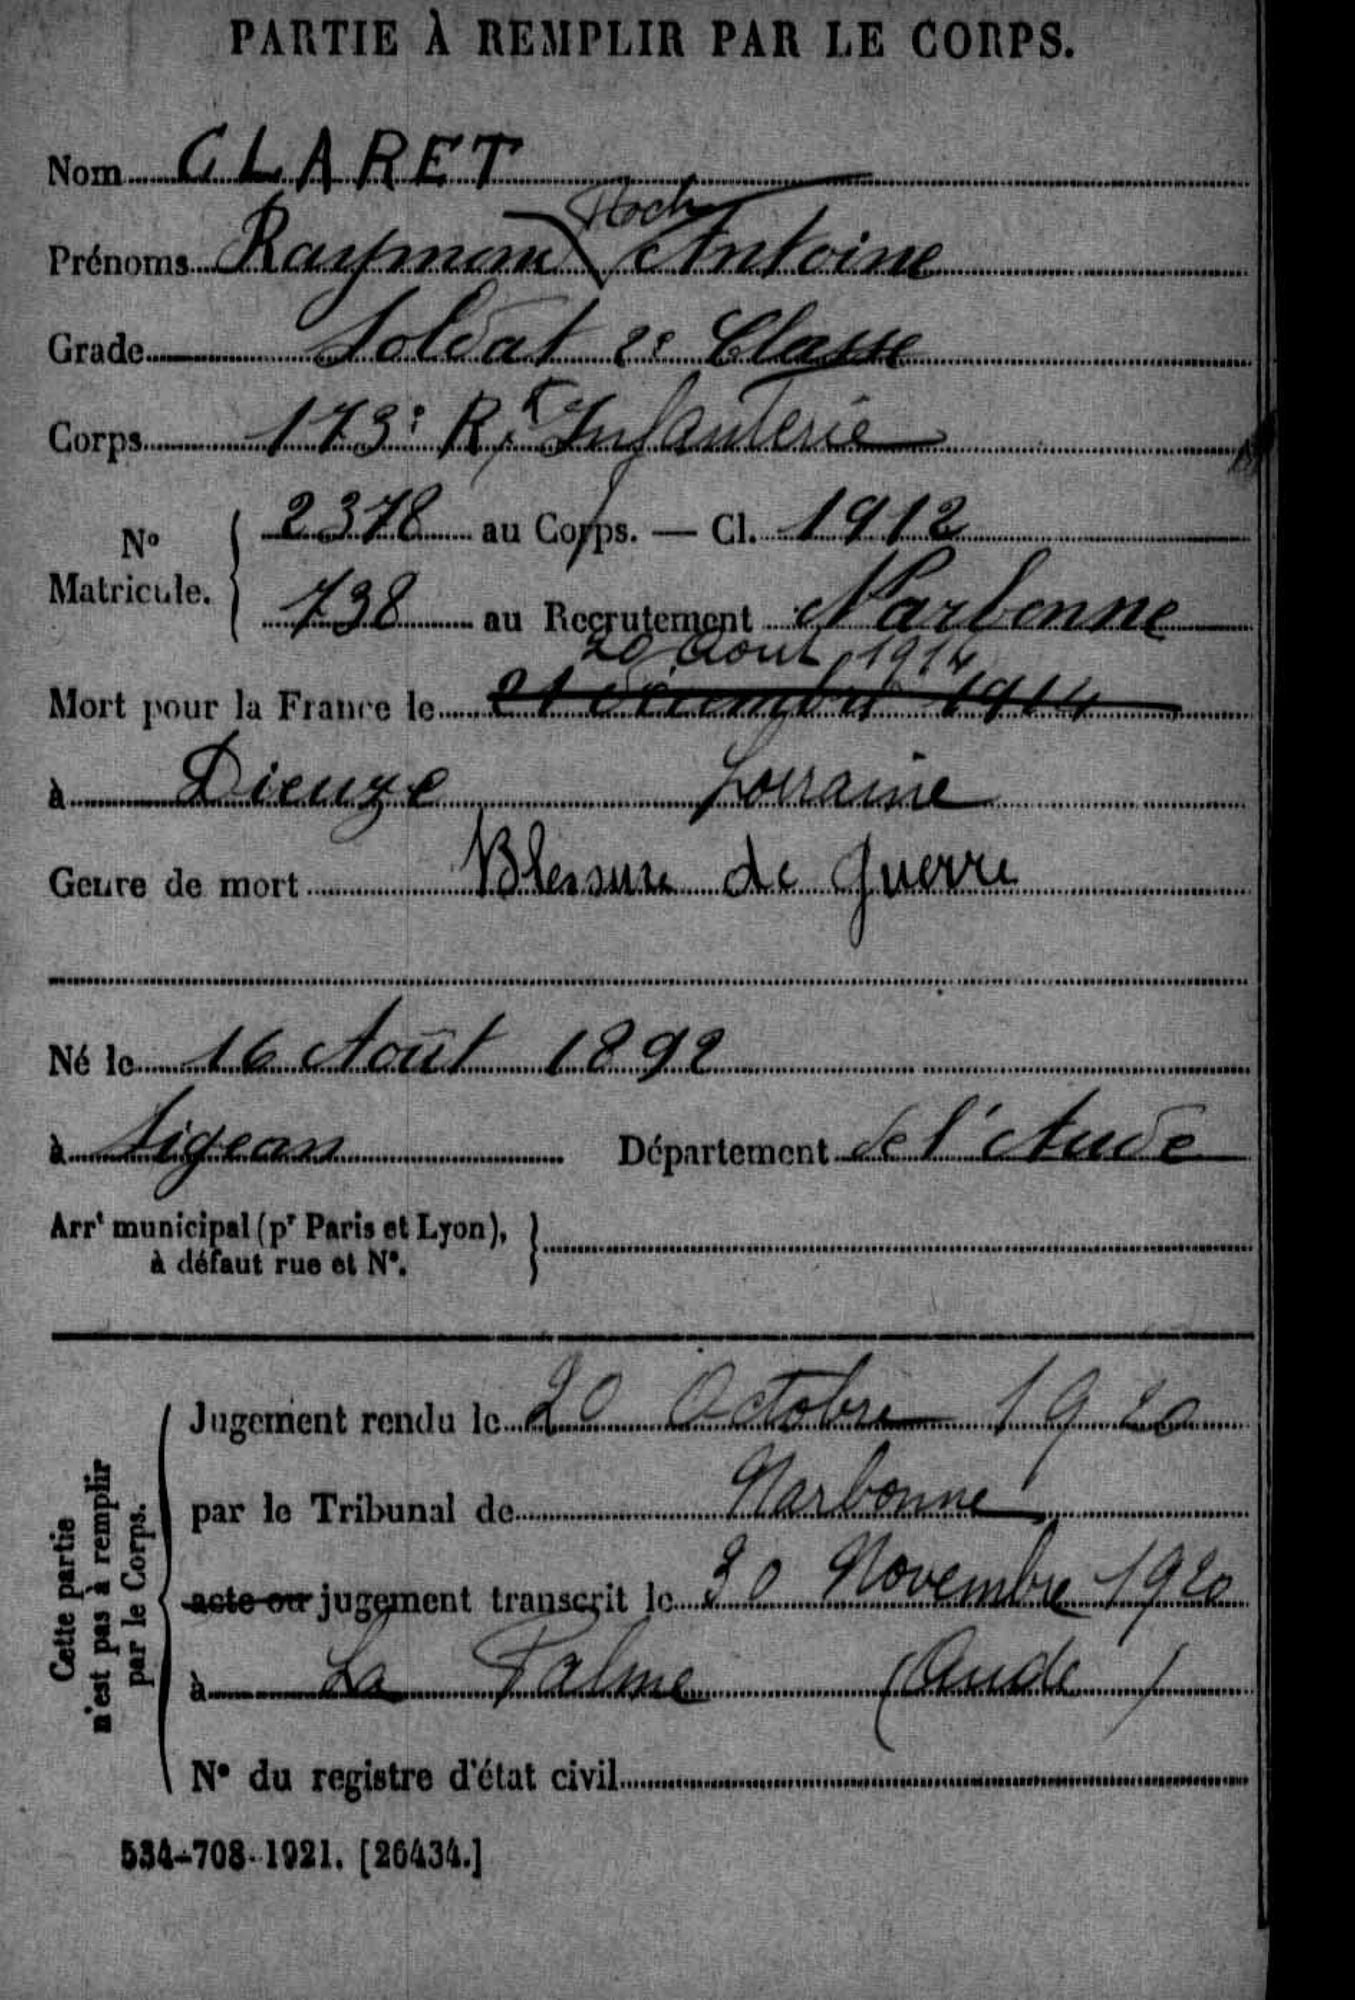 PARTIE À REMPLIR PAR LE CORPS.
Nom CLARET
Roch
Prénoms Raymond Antoine
Grade Soldat 2e Classe
Corps 173e Rt Infanterie
2378 au Corps. — Cl. 1912
N°
Matricule.
738 au Recrutement Narbonne
20 Août 1914
Mort pour la France le 21 décembre 1914
à Dieuze Lorraine
Genre de mort Blessure de guerre
Né le 16 Août 1892
à Sigean Département de l'Aude
Arrt municipal (pr Paris et Lyon),
à défaut rue et N°.
Cette partie
n'est pas à remplir
par le Corps.
Jugement rendu le 20 Octobre 1920
par le Tribunal de Narbonne
acte ou jugement transcrit le 30 Novembre 1920
à La Palme (Aude)
N° du registre d'état civil
534-708-1921. [26434.]